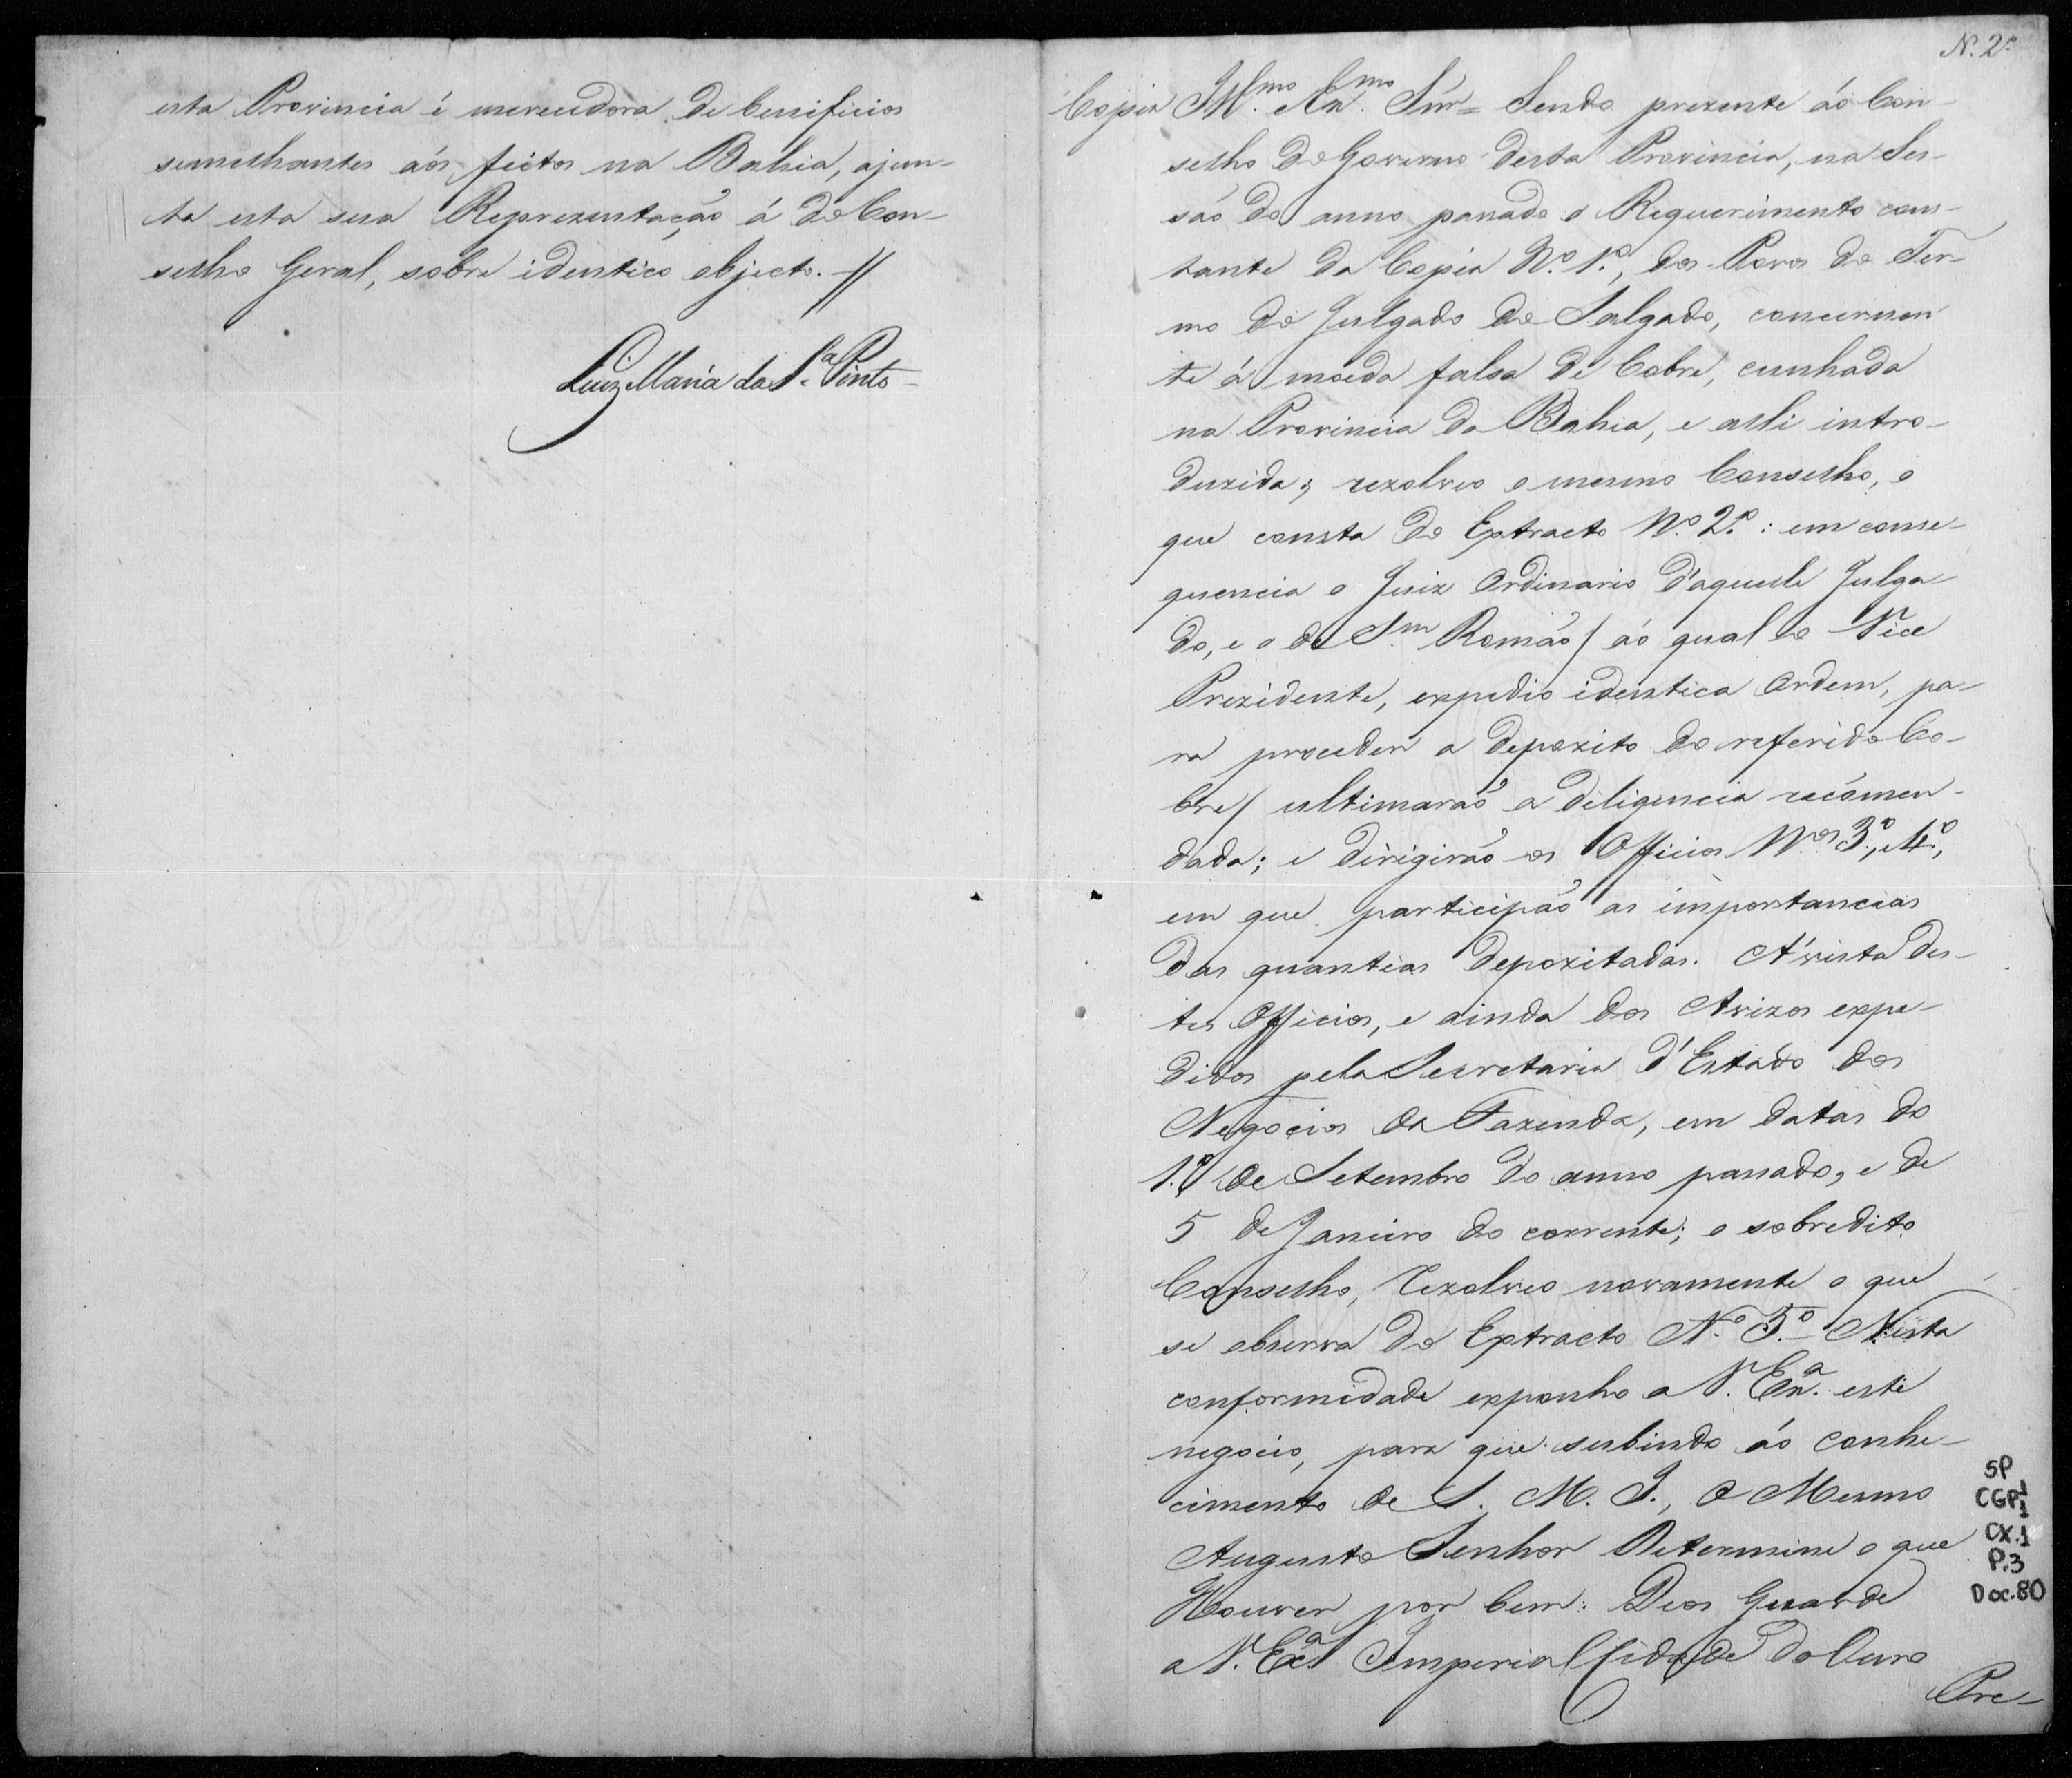 esta Provincia é merecedora de beneficios
semelhantes aós feitos na Bahia, ajun-
ta esta sua Reprezentação á do Con-
selho Geral, sobre identico objecto.
Luiz Maria da S.ª Pinto
N. 2º
Copia Ill.mo Ex.mo Snr = Sendo prezente áo Con-
selho do Governo desta Provincia, na Ses-
são do anno passado o Requerimento cons-
tante da Copia N.º 1.º, dos Povos do Ter-
mo do Julgado do Salgado, concernen
te á moeda falsa de Cobre, cunhada
na Provincia da Bahia, e alli intro-
duzida; rezolveo o mesmo Conselho, o
que consta do Extracto N.º 2.º: em conse-
quencia o Juiz Ordinario d'aquelle Julga
do, e o de S.m Romão / áo qual o Vice
Prezidente, expedio identica Ordem, pa-
ra proceder a depozito do referido Co-
bre / ultimarão a diligencia recómen-
dada; e dirigirão os Officios N.os 3.º, e 4.º,
em que participão as importancias
das quantias depozitadas. A'vista des-
tes Officios, e ainda dos Avizos expe-
didos pela Secretaria d'Estado dos
Negocios da Fazenda, em datas do
1.º de Setembro do anno passado, e de
5 de Janeiro do corrente; o sobredito
Conselho, rezolveo novamente o que
se observa do Extracto N.º 5.º - Nesta
conformidade exponho a V. Ex.ª este
negocio, para que subindo áo conhe-
cimento de S. M. I., O Mesmo
Augusto Senhor Determine o que
Houver por bem: Deos Guarde
a V. Ex.ª Imperial Cidade do Ouro
Pre-
SP
CGP1
CX.1
P.3
Doc.80